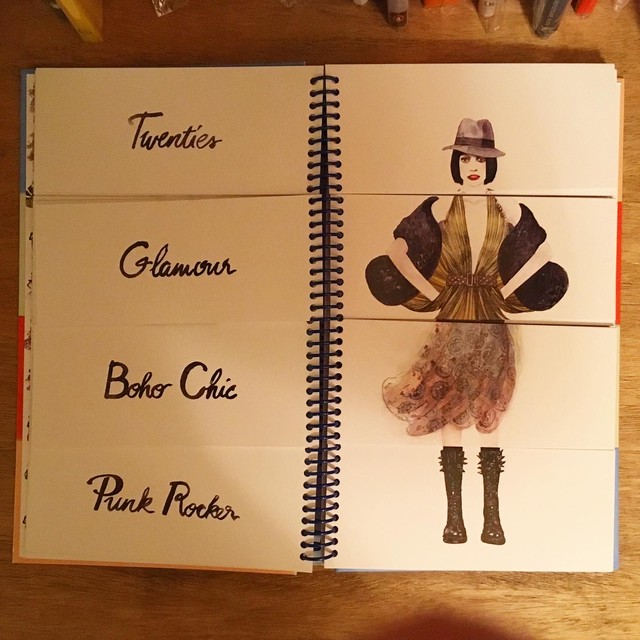 Twenties
Glamour
Boho Chic
Punk Rocker